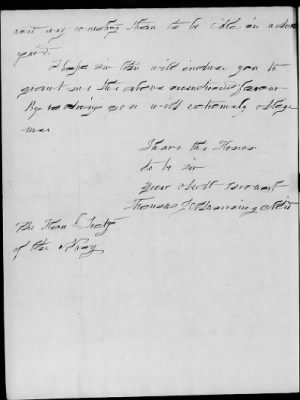 and my wanting them to be idle in a
yard.
I hope sir this will induce you to
grant me the above mentioned favour
By so doing you will extremely oblige
me.
I have the Honor
to be sir
your obedt servant
Thomas J
The Honbl Secty
of the Navy